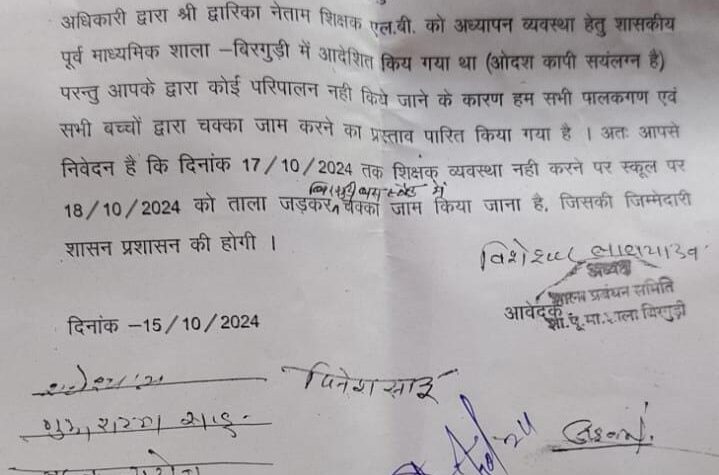 अधिकारी द्वारा श्री द्वारिका नेताम शिक्षक एल.बी. को अध्यापन व्यवस्था हेतु शासकीय
पूर्व माध्यमिक शाला –बिरगुड़ी में आदेशित किय गया था (ओदश कापी सयंलग्न है)
परन्तु आपके द्वारा कोई परिपालन नही किये जाने के कारण हम सभी पालकगण एवं
सभी बच्चों द्वारा चक्का जाम करने का प्रस्ताव पारित किया गया है । अतः आपसे
निवेदन है कि दिनांक 17/10/2024 तक शिक्षक व्यवस्था नही करने पर स्कूल पर
में
18/10/2024 को ताला जड़कर चक्का जाम किया जाना है, जिसकी जिम्मेदारी
शासन प्रशासन की होगी ।
अध्यक्ष
शाला प्रबंधन समिति
आवेदक
शा.पू.मा.शाला बिरगुड़ी
दिनांक –15/10/2024